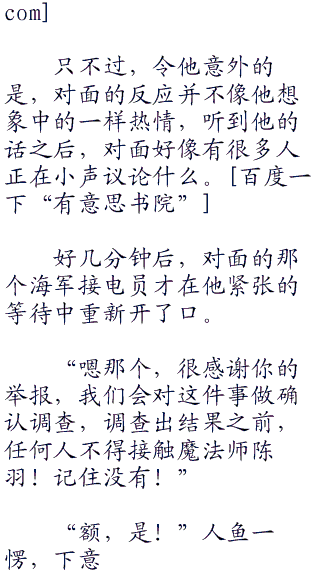 com]
只不过，令他意外的
是，对面的反应并不像他想
象中的一样热情，听到他的
话之后，对面好像有很多人
正在小声议论什么。[百度一
下“有意思书院”]
好几分钟后，对面的那
个海军接电员才在他紧张的
等待中重新开了口。
“嗯那个，很感谢你的
举报，我们会对这件事做确
认调查，调查出结果之前，
任何人不得接触魔法师陈
羽！记住没有！”
“额，是！”人鱼一
愣，下意